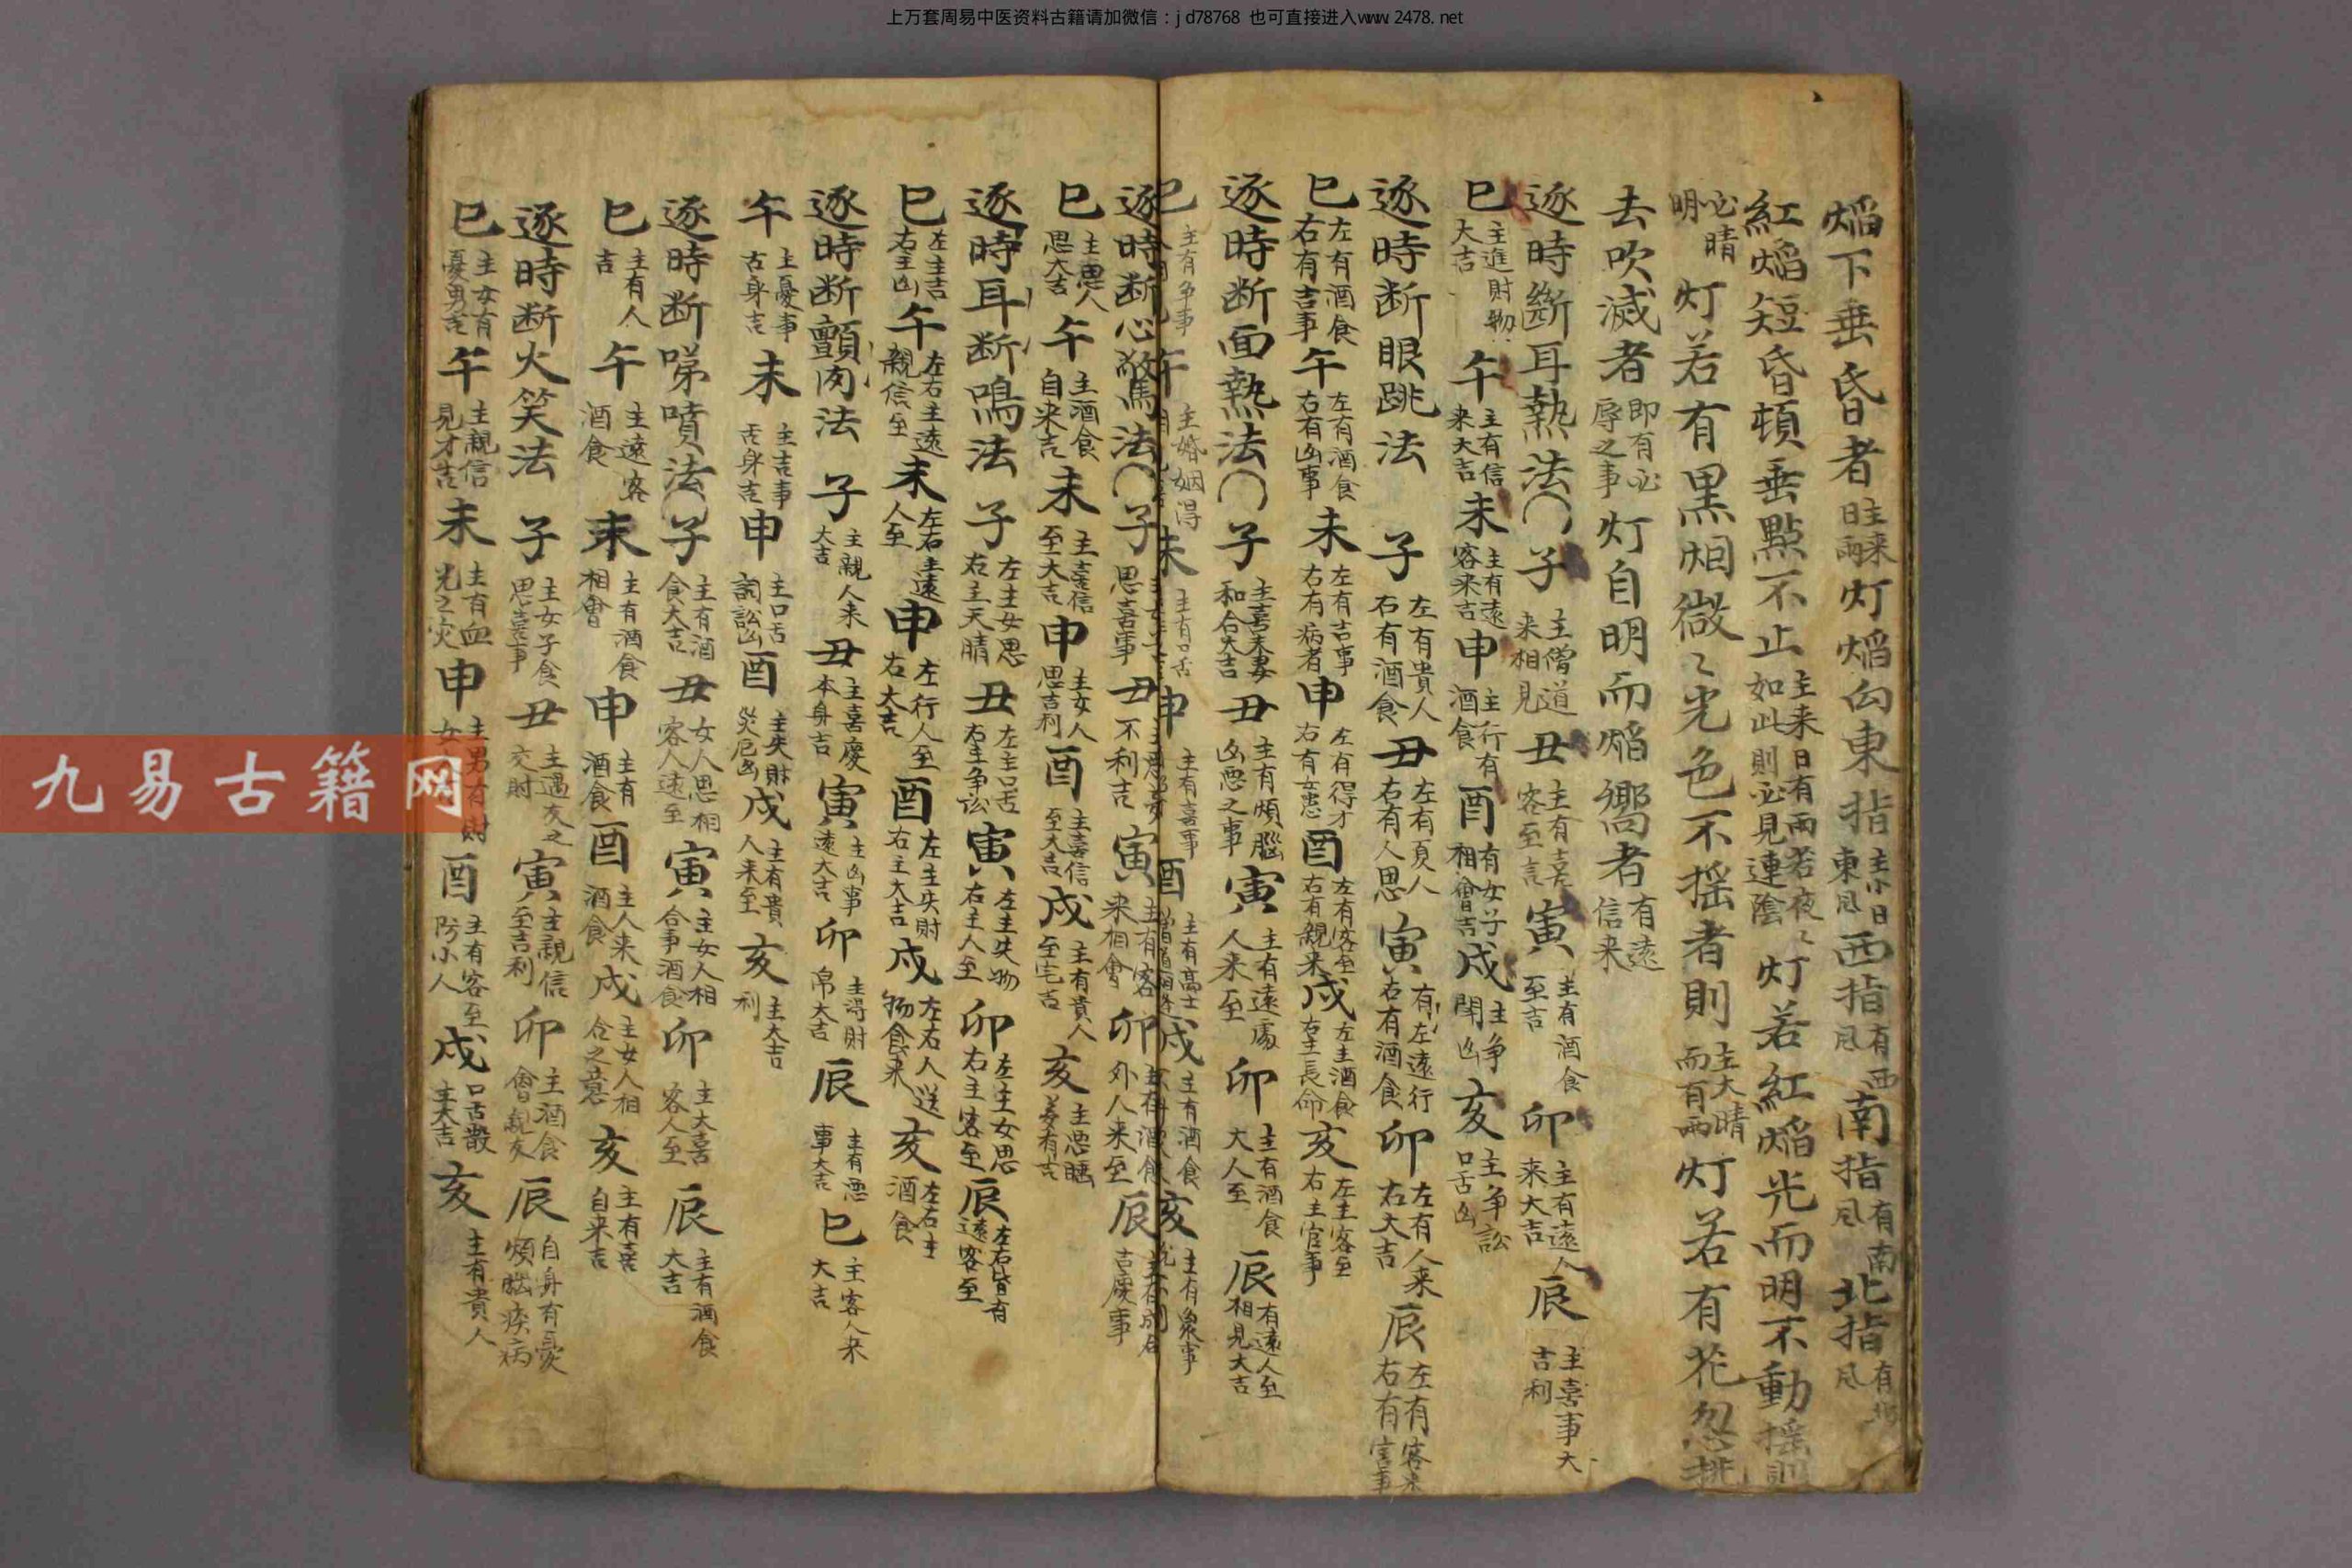 上万套周易中医资料古籍请加微信：jd78768 也可直接进入www.2478.net
焰下垂昏者主来日雨灯焰向東指主小日東风西指有西风南指有南风北指有北风
紅焰短昏頓垂點不止主来日有雨若夜々如此則必見連陰灯若紅焰光而明不動摇則
必晴明灯若有黑烟微々光色不摇者則主大晴而有雨灯若有花忽挑
去吹滅者即有必辱之事灯自明而焰嚮者有遠信来
逐時斷耳熱法子主僧道来相見丑主有喜客至吉寅主有酒食至吉卯主有遠人来大吉辰主喜事大吉利
巳主進財物大吉午主有信来大吉未主有遠客来吉申主行有酒食酉有女子相會吉戌主争鬧凶亥主争訟口舌凶
逐時断眼跳法子左有貴人右有酒食丑左有頁人右有人思寅有左遠行右有酒食卯左有人来右大吉辰左有客来右有官事
巳左有酒食右有吉事午左有酒食右有凶事未左有吉事右有病者申左有得才右有女思酉左有客至右有親来戌左主酒食右主長命亥左主客至右主官事
逐時断面熱法子主喜夫妻和合大吉丑主有煩腦凶恶之事寅主有遠處人来至卯主有酒食大人至辰有遠人至相見大吉
巳主有争事午主婚姻得未主有口舌申主有喜事酉主有高士戌主有酒食亥主有衆事
逐時断心驚法子思喜事丑不利吉寅主有客来相會卯主有酒食外人来至辰吉慶事
巳主思人思大吉午主酒食自来吉未主喜信至大吉申主女人思吉利酉主喜信至大吉戌主有貴人至宅吉亥主恶夢有吉
逐時耳断鳴法子左主女思右主天晴丑左主口舌右主争訟寅左主失物右主人至卯左主女思右主客至辰左右皆有遠客至
巳左主吉右主凶午左右主遠親信至未左右主遠人至申左行人至右大吉酉左主失財右主大吉戌左右人送物食来亥左右主酒食
逐時断顫肉法子主親人来大吉丑主喜慶本身吉寅主凶事遠大吉卯主得財帛大吉辰主有恶事大吉巳主客人来大吉
午主憂事古身吉未主吉事舌身吉申主口舌詞訟凶酉主失財災厄凶戌主有貴人来至亥主大吉利
逐時断嚏噴法子主有酒食大吉丑女人思相客人遠至寅主女人相合事酒食卯主大喜客人至辰主有酒食大吉
巳主有人吉午主遠客酒食未主有酒食相會申主有酒食酉主人来酒食戌主女人相合之意亥主有喜自来吉
逐時断火笑法子主女子食思喜事丑主遇友之交財寅主親信至吉利卯主酒食會親友辰自身有憂煩腦疾病
巳主女有憂男吉午主親信見才吉未主有血光之災申主男有財女酉主有客至防小人戌口舌散主大吉亥主有貴人
九易古籍网